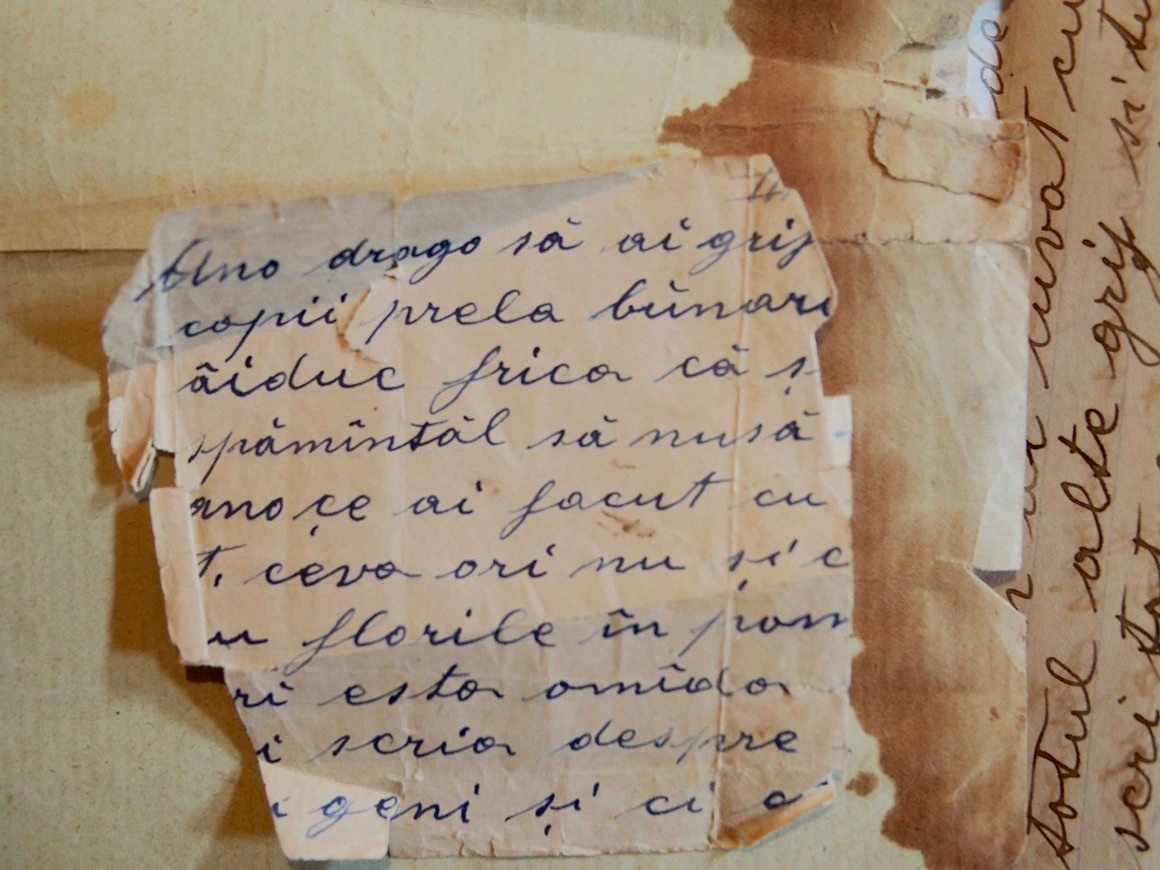 Ana draga să ai grij
copii prela bŭnari
ăiduc frica că ș
spămîntăl să nusă
ano çe ai facut cu
t, ceva ori nu și c
u florile în pom
ri esta omîda
i scria despre
i geni și ci c
de
cuvat cu
si tu
totul alte grij
scri tot